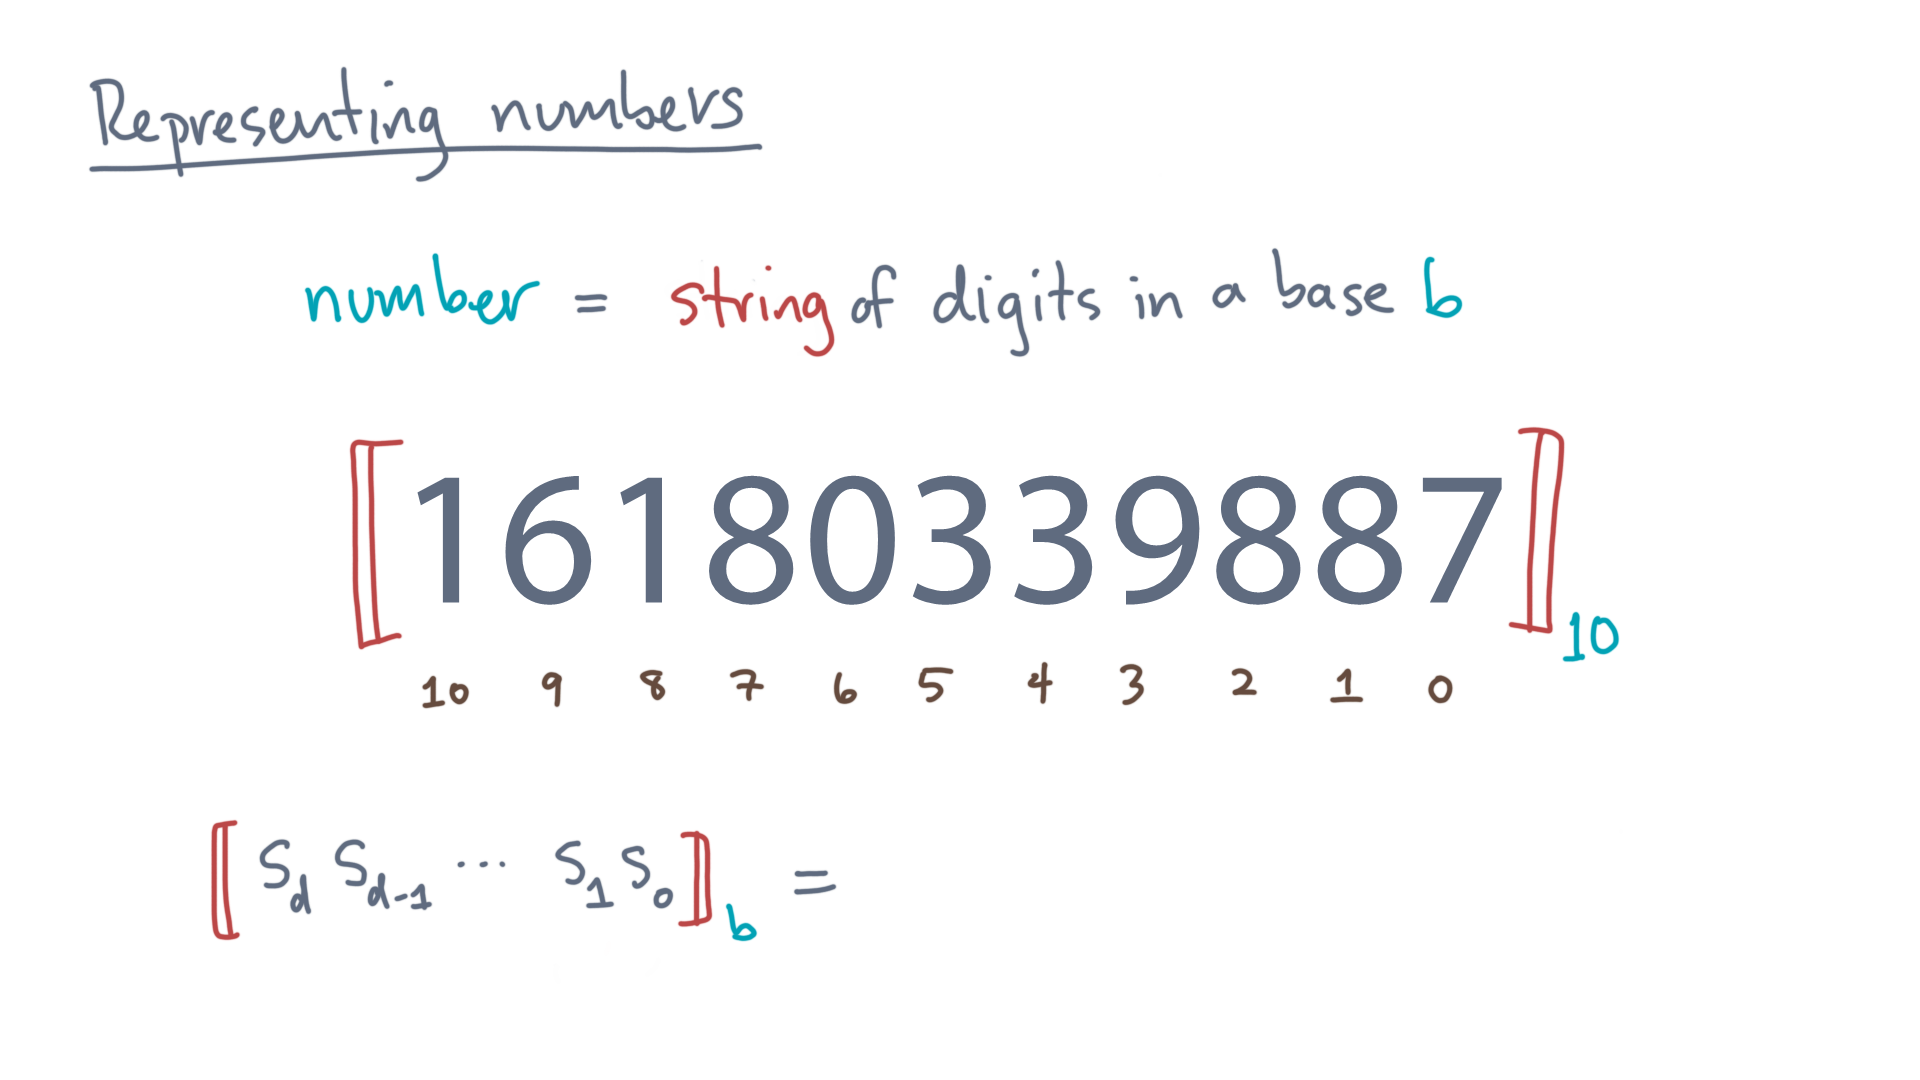 Representing numbers
number = string of digits in a base b
⟦16180339887⟧₁₀
10 9 8 7 6 5 4 3 2 1 0
⟦S_d S_{d-1} ⋯ S_1 S_0⟧_b =